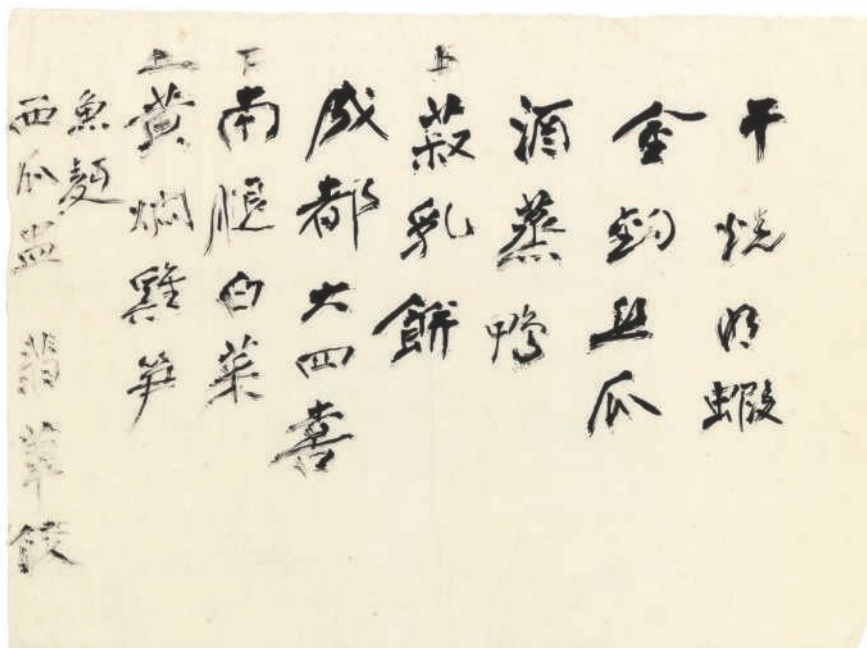 干燒明蝦
金鈎丝瓜
酒蒸鴨
上
菽乳餅
成都大四喜
下
南腿白菜
上
黃燜雞笋
魚麵
西瓜盅 翡翠餃